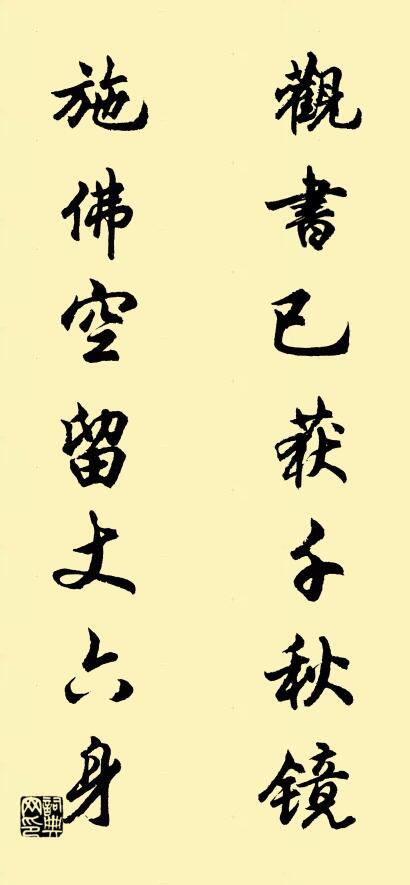 觀書已获千秋镜
施佛空留丈六身
詞典网印